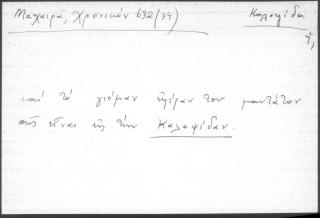 Μαχαιρᾶ, Χρονικόν 632(34)
Καλοψίδα
ἡ,
καὶ τὸ γιόμαν ἐπῆραν του μαντάτον
πῶς εἶναι εἰς τὴν Καλοψίδαν.